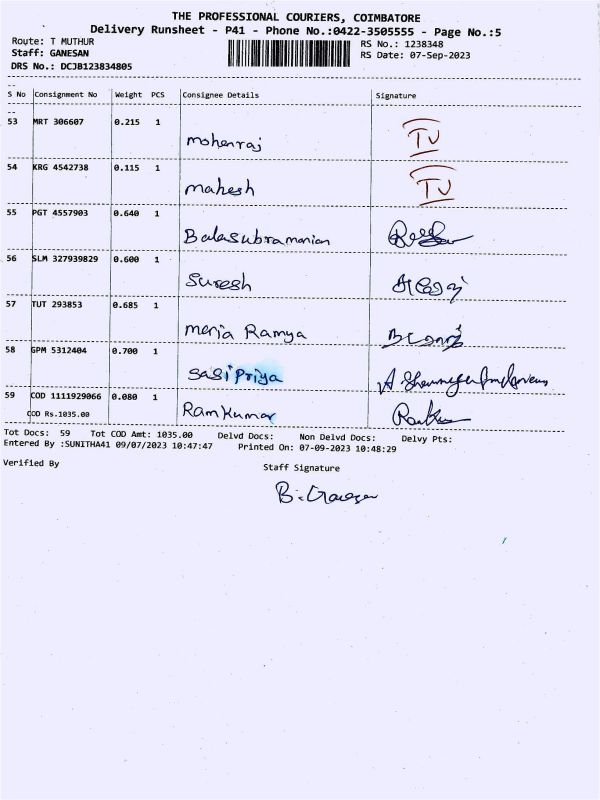 THE PROFESSIONAL COURIERS, COIMBATORE
Delivery Runsheet - P41 - Phone No.:0422-3505555 - Page No.:5
Route: T MUTHUR
Staff: GANESAN
DRS No.: DCJB123834805
RS No.: 1238348
RS Date: 07-Sep-2023
S No Consignment No Weight PCS Consignee Details Signature
53 MRT 306607 0.215 1
mohenraj TV
54 KRG 4542738 0.115 1
mahesh TV
55 PGT 4557903 0.640 1
Balasubramanian
56 SLM 327939829 0.600 1
Suresh
57 TUT 293853 0.685 1
meria Ramya
58 GPM 5312404 0.700 1
Sasipriya
59 COD 1111929066 0.080 1
COD Rs.1035.00 Ramkumar
Tot Docs: 59 Tot COD Amt: 1035.00 Delvd Docs: Non Delvd Docs: Delvy Pts:
Entered By :SUNITHA41 09/07/2023 10:47:47 Printed On: 07-09-2023 10:48:29
Verified By Staff Signature